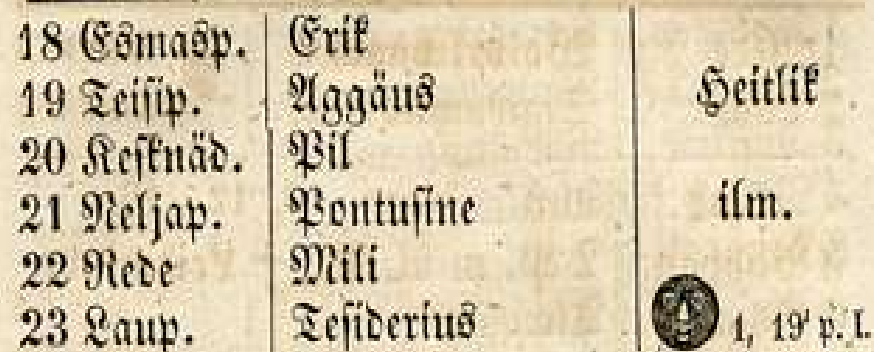 18 Esmasp. Erik
19 Teisip. Aggäus Heitlik
20 Kesknäd. Pil
21 Neljap. Pontusine ilm.
22 Rede Mili
23 Laup. Tesiderius 1, 19' p. l.